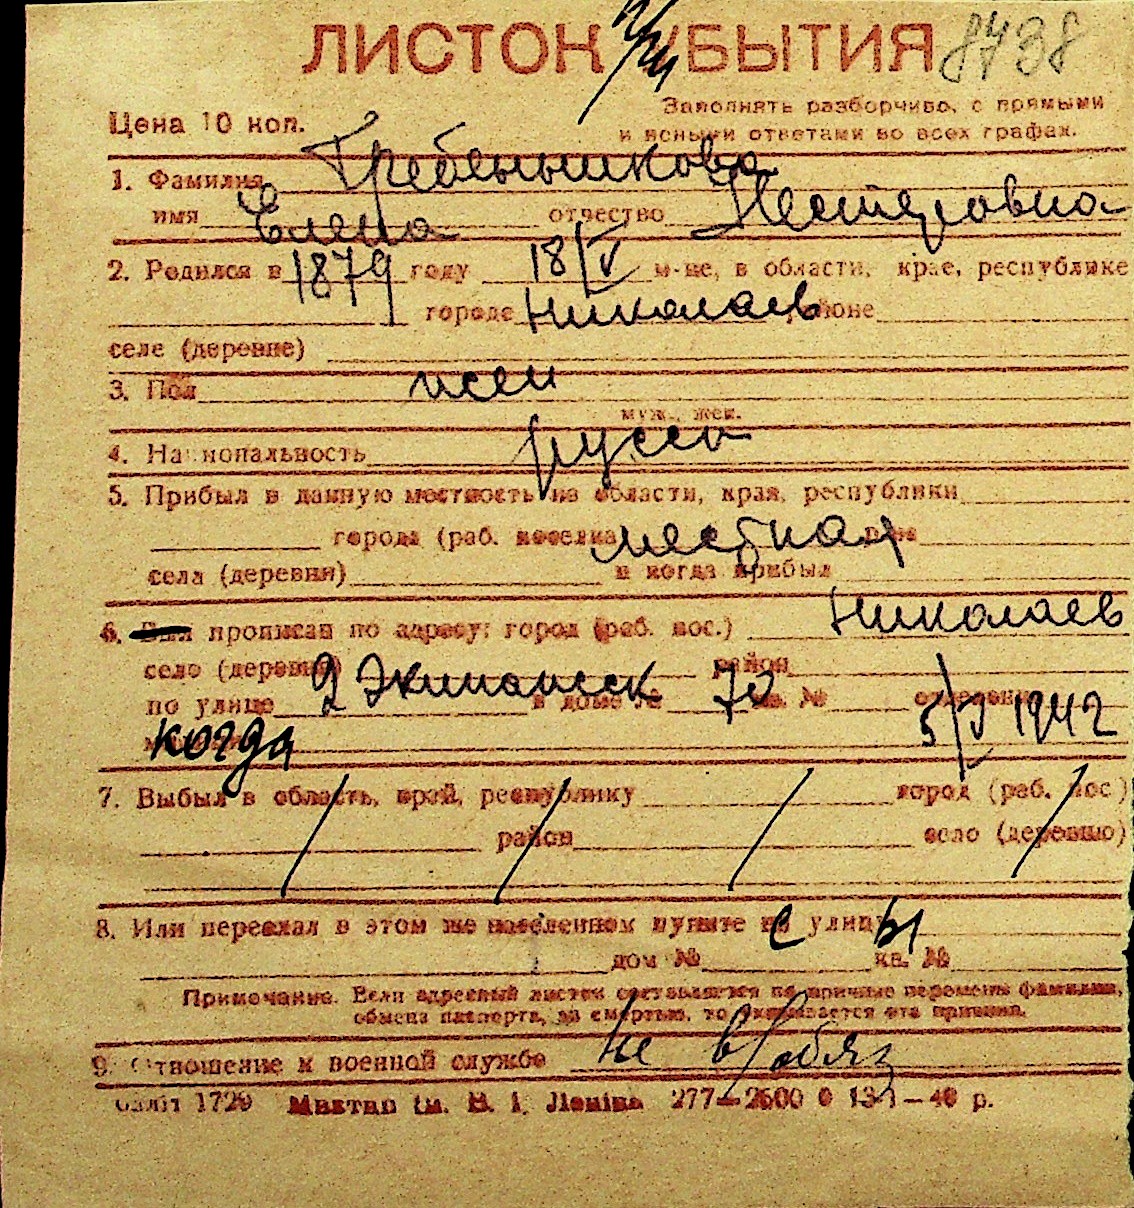 ЛИСТОК УБЫТИЯ 8738
Цена 10 коп.
Заполнять разборчиво, с прямыми
и ясными ответами во всех графах.
1. Фамилия Гребеньшикова
имя Елена отчество Нестеровна
2. Родился в 1879 году 18/V м-це, в области, крае, республике
городе Николаев районе
селе (деревне)
3. Пол жен
муж., жен.
4. Национальность русск
5. Прибыл в данную местность из области, края, республики
города (раб. поселка местная
села (деревни) и когда прибыл
6. Был прописан по адресу: город (раб. пос.) Николаев
село (деревня) район
по улице 2 Экипажск в доме № 70 кв. № отделени
когда 5/V 1942
7. Выбыл в область, край, республику город (раб. пос.)
район село (деревню)
8. Или переехал в этом же населенном пункте с улицы
дом № кв. №
Примечание. Если адресный листок составляется по причине перемены фамилии,
обмена паспорта, за смертью, то указывается эта причина.
9. Отношение к военной службе не в/обяз
1729 им. В. І. Леніна 277—2500 — 40 р.